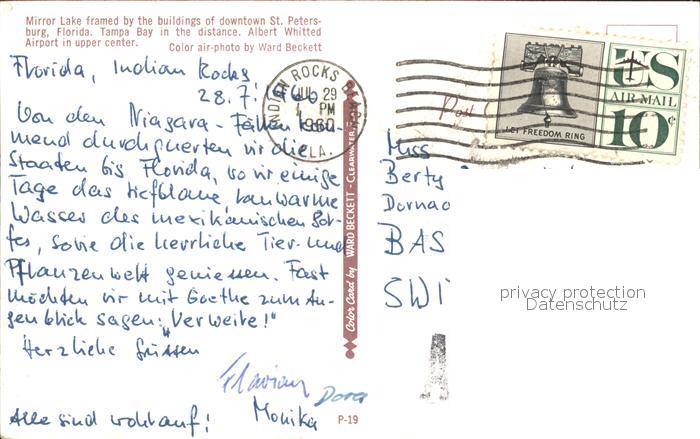 Mirror Lake framed by the buildings of downtown St. Peters-
burg, Florida. Tampa Bay in the distance. Albert Whitted
Airport in upper center.
Color air-photo by Ward Beckett
Florida, Indian Rocks
28.7.1960
Von den Niagara-Fällen kom-
mend durchquerten wir die
Staaten bis Florida, wo wir einige
Tage das tiefblaue, lauwarme
Wasser des mexikanischen Gol-
fes, sowie die herrliche Tier- und
Pflanzenwelt geniessen. Fast
möchten wir mit Goethe zum Au-
genblick sagen: "Verweile!"
Herzliche Grüssen
Flavian
Dora
Alle sind wohlauf!
Monika
P-19
Color Card by WARD BECKETT - CLEARWATER,
INDIAN ROCKS
JUL 29
PM
1960
FLA.
LET FREEDOM RING
US
AIR MAIL
10¢
Post
Miss
Berty
Dornac
BAS
SWI
privacy protection
Datenschutz